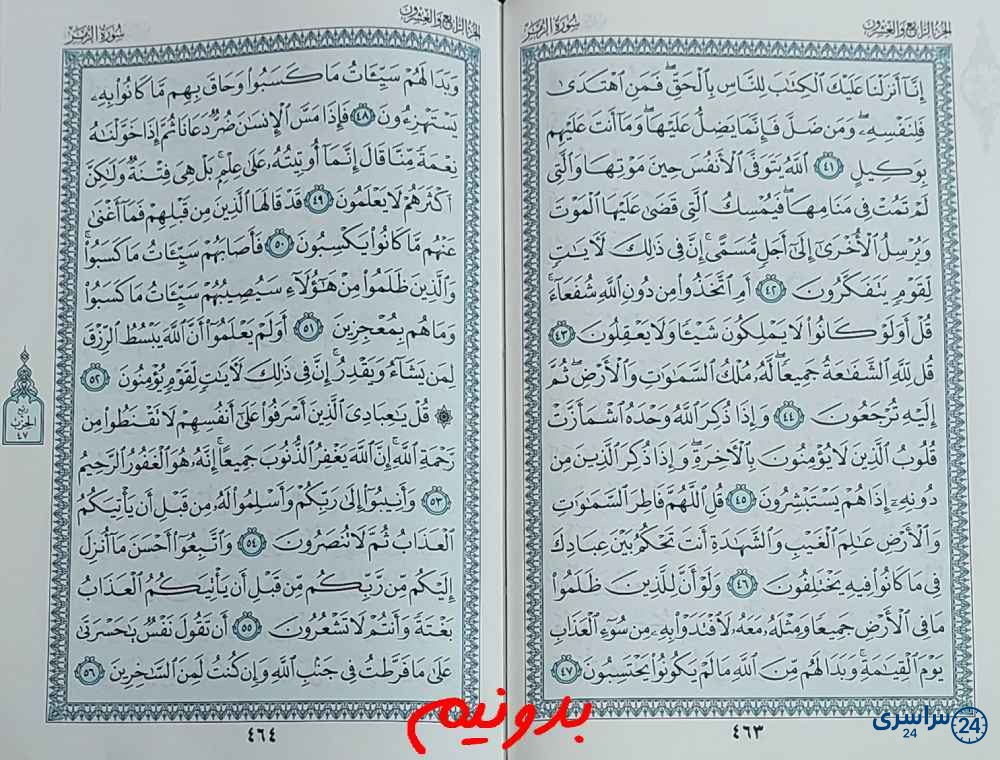 الجزء الرابع والعشرون
سورة الزمر
إِنَّا أَنزَلْنَا عَلَيْكَ الْكِتَٰبَ لِلنَّاسِ بِالْحَقِّ ۖ فَمَنِ اهْتَدَىٰ
فَلِنَفْسِهِۦ ۖ وَمَن ضَلَّ فَإِنَّمَا يَضِلُّ عَلَيْهَا ۖ وَمَا أَنتَ عَلَيْهِم
بِوَكِيلٍ ٤١ اللَّهُ يَتَوَفَّى الْأَنفُسَ حِينَ مَوْتِهَا وَالَّتِي
لَمْ تَمُتْ فِي مَنَامِهَا ۖ فَيُمْسِكُ الَّتِي قَضَىٰ عَلَيْهَا الْمَوْتَ
وَيُرْسِلُ الْأُخْرَىٰ إِلَىٰ أَجَلٍ مُّسَمًّى ۚ إِنَّ فِي ذَٰلِكَ لَآيَٰتٍ
لِّقَوْمٍ يَتَفَكَّرُونَ ٤٢ أَمِ اتَّخَذُوا مِن دُونِ اللَّهِ شُفَعَاءَ ۚ
قُلْ أَوَلَوْ كَانُوا لَا يَمْلِكُونَ شَيْئًا وَلَا يَعْقِلُونَ ٤٣
قُل لِّلَّهِ الشَّفَٰعَةُ جَمِيعًا ۖ لَّهُۥ مُلْكُ السَّمَٰوَٰتِ وَالْأَرْضِ ۖ ثُمَّ
إِلَيْهِ تُرْجَعُونَ ٤٤ وَإِذَا ذُكِرَ اللَّهُ وَحْدَهُ اشْمَأَزَّتْ
قُلُوبُ الَّذِينَ لَا يُؤْمِنُونَ بِالْآخِرَةِ ۖ وَإِذَا ذُكِرَ الَّذِينَ مِن
دُونِهِۦٓ إِذَا هُمْ يَسْتَبْشِرُونَ ٤٥ قُلِ اللَّهُمَّ فَاطِرَ السَّمَٰوَٰتِ
وَالْأَرْضِ عَٰلِمَ الْغَيْبِ وَالشَّهَٰدَةِ أَنتَ تَحْكُمُ بَيْنَ عِبَادِكَ
فِي مَا كَانُوا فِيهِ يَخْتَلِفُونَ ٤٦ وَلَوْ أَنَّ لِلَّذِينَ ظَلَمُوا
مَا فِي الْأَرْضِ جَمِيعًا وَمِثْلَهُۥ مَعَهُۥ لَافْتَدَوْا بِهِۦ مِن سُوءِ الْعَذَابِ
يَوْمَ الْقِيَٰمَةِ ۚ وَبَدَا لَهُم مِّنَ اللَّهِ مَا لَمْ يَكُونُوا يَحْتَسِبُونَ ٤٧
٤٦٣
الجزء الرابع والعشرون
سورة الزمر
وَبَدَا لَهُمْ سَيِّـَٔاتُ مَا كَسَبُوا وَحَاقَ بِهِم مَّا كَانُوا بِهِۦ
يَسْتَهْزِءُونَ ٤٨ فَإِذَا مَسَّ الْإِنسَٰنَ ضُرٌّ دَعَانَا ثُمَّ إِذَا خَوَّلْنَٰهُ
نِعْمَةً مِّنَّا قَالَ إِنَّمَا أُوتِيتُهُۥ عَلَىٰ عِلْمٍ ۚ بَلْ هِيَ فِتْنَةٌ وَلَٰكِنَّ
أَكْثَرَهُمْ لَا يَعْلَمُونَ ٤٩ قَدْ قَالَهَا الَّذِينَ مِن قَبْلِهِمْ فَمَا أَغْنَىٰ
عَنْهُم مَّا كَانُوا يَكْسِبُونَ ٥٠ فَأَصَابَهُمْ سَيِّـَٔاتُ مَا كَسَبُوا ۚ
وَالَّذِينَ ظَلَمُوا مِنْ هَٰٓؤُلَاءِ سَيُصِيبُهُمْ سَيِّـَٔاتُ مَا كَسَبُوا
وَمَا هُم بِمُعْجِزِينَ ٥١ أَوَلَمْ يَعْلَمُوا أَنَّ اللَّهَ يَبْسُطُ الرِّزْقَ
لِمَن يَشَاءُ وَيَقْدِرُ ۚ إِنَّ فِي ذَٰلِكَ لَآيَٰتٍ لِّقَوْمٍ يُؤْمِنُونَ ٥٢
۞ قُلْ يَٰعِبَادِيَ الَّذِينَ أَسْرَفُوا عَلَىٰ أَنفُسِهِمْ لَا تَقْنَطُوا مِن
رَّحْمَةِ اللَّهِ ۚ إِنَّ اللَّهَ يَغْفِرُ الذُّنُوبَ جَمِيعًا ۚ إِنَّهُۥ هُوَ الْغَفُورُ الرَّحِيمُ
٥٣ وَأَنِيبُوا إِلَىٰ رَبِّكُمْ وَأَسْلِمُوا لَهُۥ مِن قَبْلِ أَن يَأْتِيَكُمُ
الْعَذَابُ ثُمَّ لَا تُنصَرُونَ ٥٤ وَاتَّبِعُوا أَحْسَنَ مَا أُنزِلَ
إِلَيْكُم مِّن رَّبِّكُم مِّن قَبْلِ أَن يَأْتِيَكُمُ الْعَذَابُ
بَغْتَةً وَأَنتُمْ لَا تَشْعُرُونَ ٥٥ أَن تَقُولَ نَفْسٌ يَٰحَسْرَتَىٰ
عَلَىٰ مَا فَرَّطتُ فِي جَنبِ اللَّهِ وَإِن كُنتُ لَمِنَ السَّٰخِرِينَ ٥٦
٤٦٤
ربع
الحزب
٤٧
بدونیم
سراسری 24
24